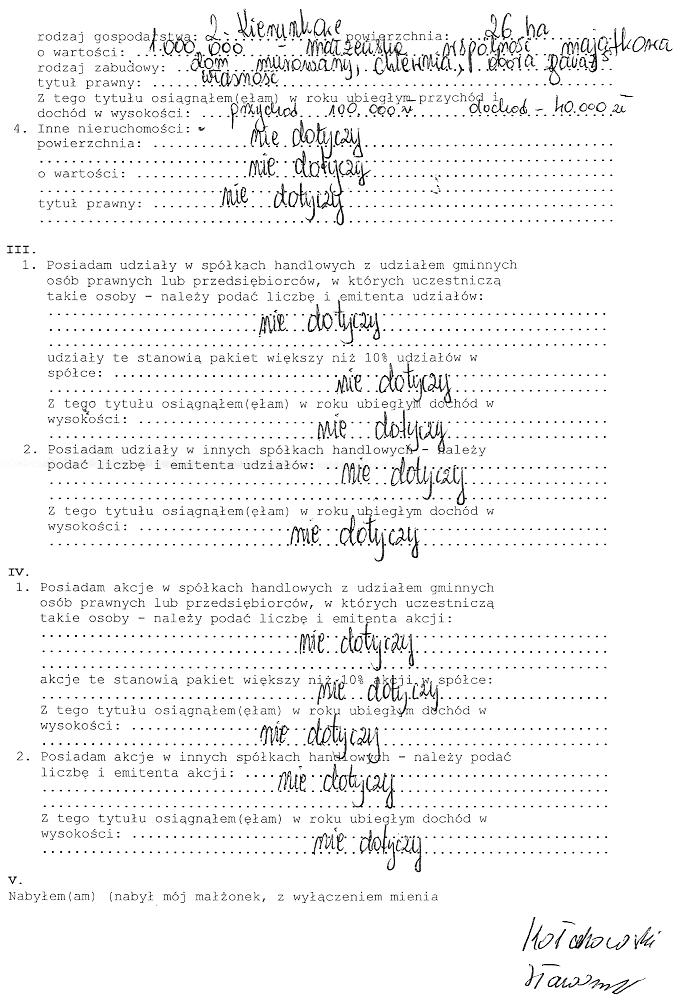 rodzaj gospodarstwa: 2-kierunkowe powierzchnia: 26 ha
o wartości: 1.000.000 - małżeńska wspólność majątkowa
rodzaj zabudowy: dom murowany, chlewnia, obora garaż
tytuł prawny: własność
Z tego tytułu osiągnąłem(ęłam) w roku ubiegłym przychód i
dochód w wysokości: przychód 100.000 zł dochód - 40.000 zł
4. Inne nieruchomości:
powierzchnia: nie dotyczy
o wartości: nie dotyczy
tytuł prawny: nie dotyczy
III.
1. Posiadam udziały w spółkach handlowych z udziałem gminnych
osób prawnych lub przedsiębiorców, w których uczestniczą
takie osoby - należy podać liczbę i emitenta udziałów:
nie dotyczy
udziały te stanowią pakiet większy niż 10% udziałów w
spółce: nie dotyczy
Z tego tytułu osiągnąłem(ęłam) w roku ubiegłym dochód w
wysokości: nie dotyczy
2. Posiadam udziały w innych spółkach handlowych - należy
podać liczbę i emitenta udziałów: nie dotyczy
Z tego tytułu osiągnąłem(ęłam) w roku ubiegłym dochód w
wysokości: nie dotyczy
IV.
1. Posiadam akcje w spółkach handlowych z udziałem gminnych
osób prawnych lub przedsiębiorców, w których uczestniczą
takie osoby - należy podać liczbę i emitenta akcji:
nie dotyczy
akcje te stanowią pakiet większy niż 10% akcji w spółce:
nie dotyczy
Z tego tytułu osiągnąłem(ęłam) w roku ubiegłym dochód w
wysokości: nie dotyczy
2. Posiadam akcje w innych spółkach handlowych - należy podać
liczbę i emitenta akcji: nie dotyczy
Z tego tytułu osiągnąłem(ęłam) w roku ubiegłym dochód w
wysokości: nie dotyczy
V.
Nabyłem(am) (nabył mój małżonek, z wyłączeniem mienia
Kołakowski